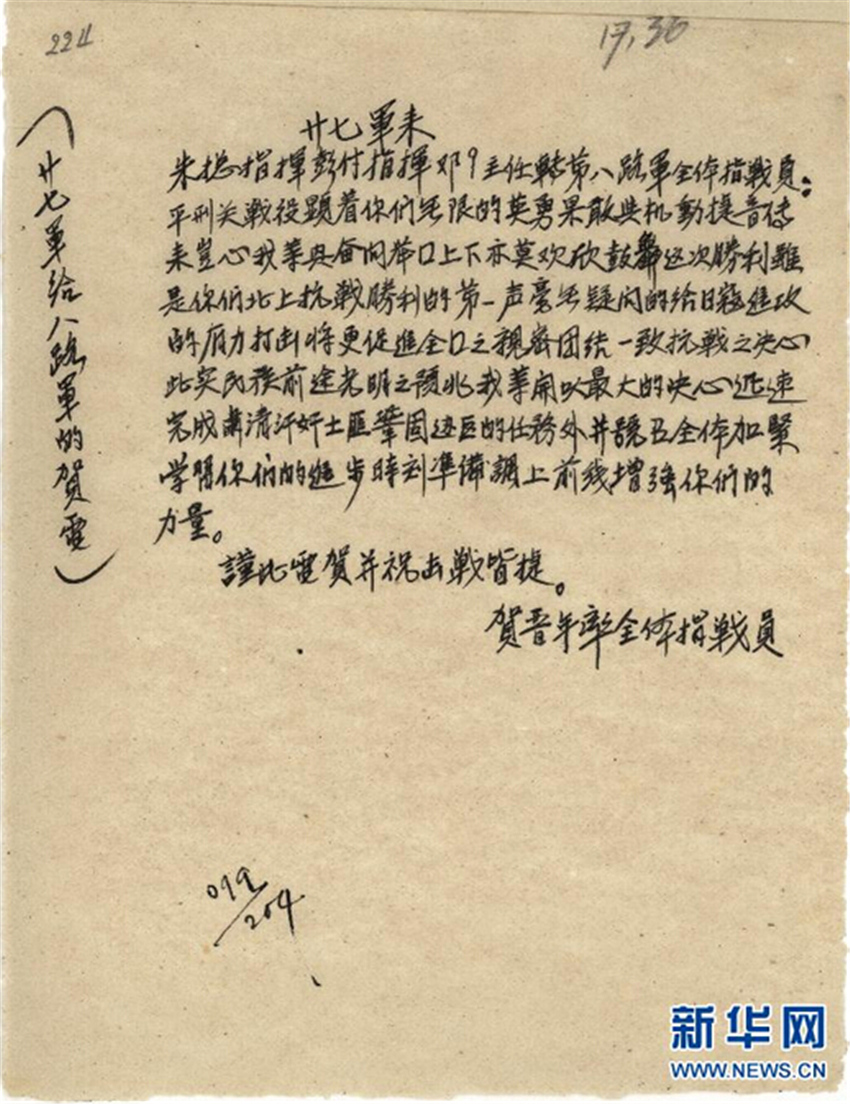 224
17,36
(廿七軍给八路軍的賀電)
廿七軍来
朱总指揮彭付指揮邓 主任轉第八路軍全体指戰員：
平刑关戰役顕着你们无限的英勇果敢与机動捷音传
来 心我等与奋同举口上下亦莫欢欣鼓舞这次勝利雖
是你们北上抗戰勝利的第一声毫无疑问的给日寇進攻
的有力打击将更促進全口之親密团结一致抗戰之决心
此实民族前途光明之預兆我等開以最大的决心迅速
完成肃清汗奸土匪鞏固边区的任務外并 全体加緊
学習你们的進步時刻準備調上前线增強你们的
力量。
謹此電賀并祝出戰皆捷。
贺晋年率全体指戰員
099/204
新华网
WWW.NEWS.CN